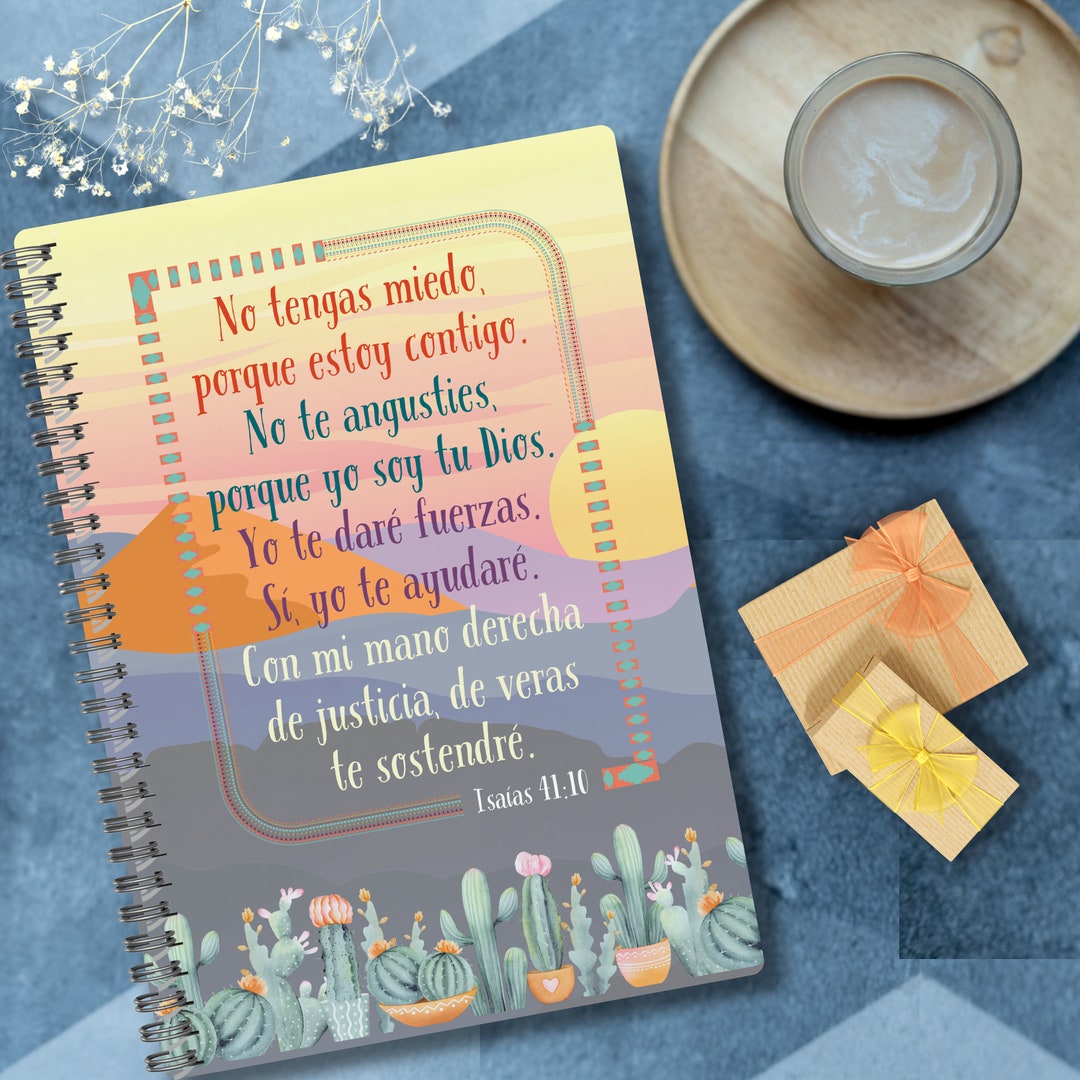 No tengas miedo,
porque estoy contigo.
No te angusties,
porque yo soy tu Dios.
Yo te daré fuerzas.
Sí, yo te ayudaré.
Con mi mano derecha
de justicia, de veras
te sostendré.
Isaías 41:10